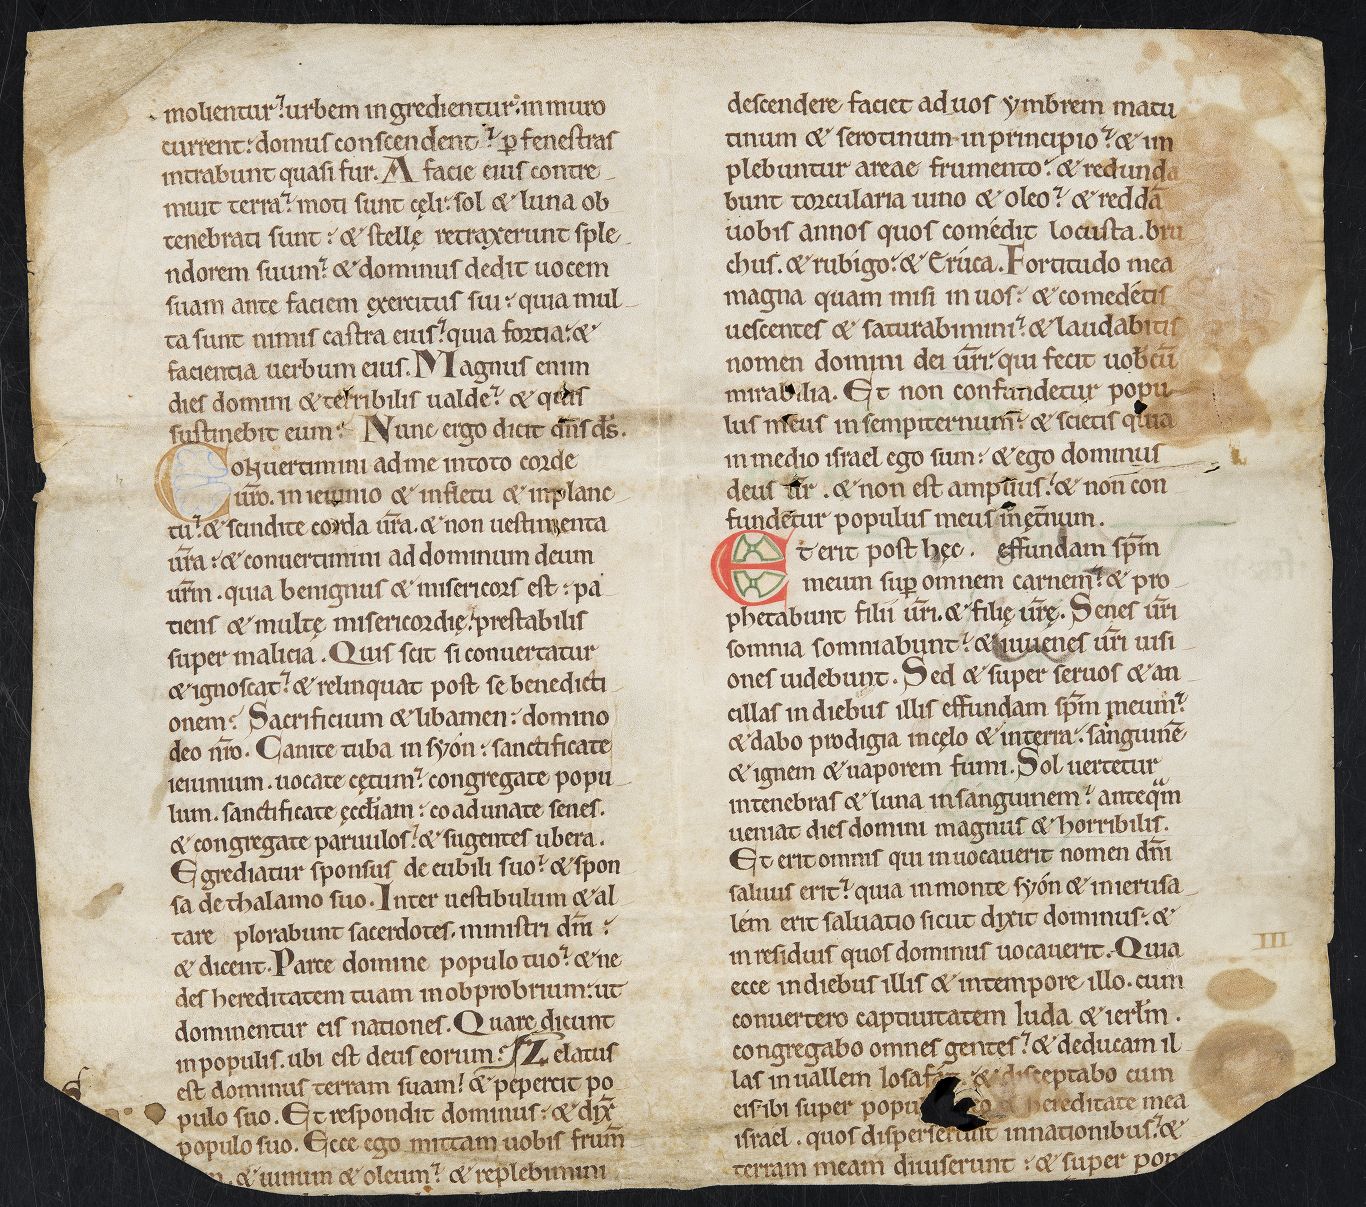 molientur. urbem ingredientur. in muro
current. domus conscendent. ꝑ fenestras
intrabunt quasi fur. A facie eius contre
muit terra. moti sunt cęli. sol & luna ob
tenebrati sunt. & stellę retraxerunt sple
ndorem suum. & dominus dedit uocem
suam ante faciem exercitus sui. quia mul
ta sunt nimis castra eius. quia fortia. &
facientia uerbum eius. Magnus enim
dies domini & terribilis ualde. & quis
sustinebit eum. Nunc ergo dicit dn̄s ds̄.
Conuertimini ad me in toto corde
ur̄o. in ieiunio & in fletu & in planc
tu. & scindite corda ur̄a. & non uestimenta
ur̄a. & conuertimini ad dominum deum
ur̄m. quia benignus & misericors est. pa
tiens & multę misericordię. prestabilis
super malicia. Quis scit si conuertatur
& ignoscat. & relinquat post se benedicti
onem. Sacrificium & libamen. domino
deo nr̄o. Canite tuba in syón. sanctificate
ieiunium. uocate cętum. congregate popu
lum. sanctificate ęccl̄iam. coadunate senes.
& congregate paruulos. & sugentes ubera.
Egrediatur sponsus de cubili suo. & spon
sa de thalamo suo. Inter uestibulum & al
tare plorabunt sacerdotes. ministri dn̄i.
& dicent. Parce domine populo tuo. & ne
des hereditatem tuam in obprobrium. ut
dominentur eis nationes. Quare dicunt
in populis. ubi est deus eorum. Zelatus
est dominus terram suam. & pepercit po
pulo suo. Et respondit dominus. & dix̄
populo suo. Ecce ego mittam uobis frum̄
& uinum & oleum. & replebimini
descendere faciet ad uos ymbrem matu
tinum & serotinum in principio. & im
plebuntur areae frumento. & redunda
bunt torcularia uino & oleo. & reddā
uobis annos quos comedit locusta. bru
chus. & rubigo. & Eruca. Fortitudo mea
magna quam misi in uos. & comedetis
uescentes & saturabimini. & laudabitis
nomen domini dei ur̄i. qui fecit uobcū
mirabilia. Et non confundetur popu
lus meus in sempiternum̄. & scietis quia
in medio israel ego sum. & ego dominus
deus ur̄. & non est amplius. & non con
fundetur populus meus in ęt̄num.
Et erit post hęc. effundam sp̄m
meum suꝑ omnem carnem. & pro
phetabunt filii ur̄i. & filię ur̄ę. Senes ur̄i
somnia somniabunt. & iuuenes ur̄i uisi
ones uidebunt. Sed & super seruos & an
cillas in diebus illis effundam sp̄m meum.
& dabo prodigia in cęlo & in terra. sanguinē
& ignem & uaporem fumi. Sol uertetur
in tenebras & luna in sanguinem. anteq̄m
ueniat dies domini magnus & horribilis.
Et erit omnis qui inuocauerit nomen dn̄i
saluus erit. quia in monte syón & in ierusa
lém erit saluatio sicut dixit dominus. &
in residuis quos dominus uocauerit. Quia
ecce in diebus illis & in tempore illo. cum
conuertero captiuitatem Iuda & ierl̄m.
congregabo omnes gentes. & deducam il
las in uallem Iosafat. & disceptabo cum
eis ibi super popu & hereditate mea
israel. quos disperserunt in nationibus. &
terram meam diuiserunt. & super pop
III